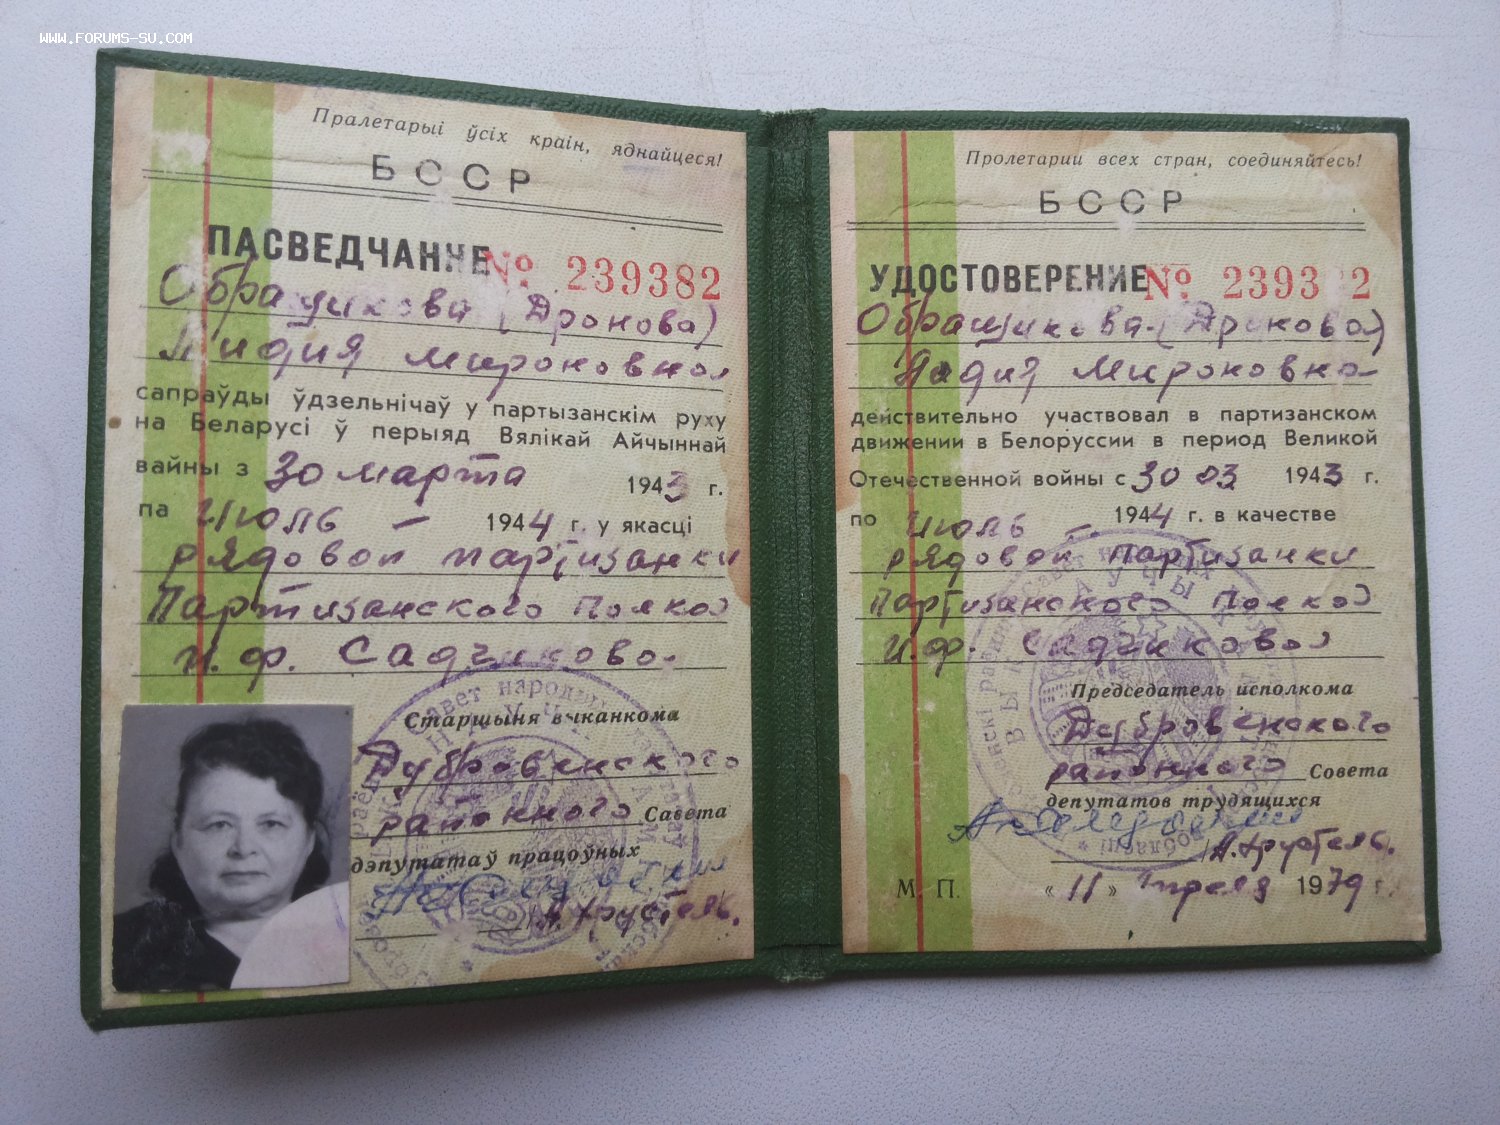 WWW.FORUMS-SU.COM
Пралетарыі ўсіх краін, яднайцеся!
БССР
ПАСВЕДЧАННЕ № 239382
Обращикова (Дронова)
Лидия Мироновна
сапраўды ўдзельнічаў у партызанскім руху
на Беларусі ў перыяд Вялікай Айчыннай
вайны з 30 марта 1943 г.
па Июль – 1944 г. у якасці
рядовой партизанки
Партизанского Полка
И.Ф. Садчикова
Старшыня выканкома
Дубровенского
районного Савета
дэпутатаў працоўных
А. Хрусталь.
Пролетарии всех стран, соединяйтесь!
БССР
УДОСТОВЕРЕНИЕ № 2393 2
Обращикова (Дронова)
Лидия Мироновна
действительно участвовал в партизанском
движении в Белоруссии в период Великой
Отечественной войны с 30 03 1943 г.
по Июль – 1944 г. в качестве
рядовой партизанки
Партизанского Полка
И.Ф. Садчикова
Председатель исполкома
Дубровенского
районного Совета
депутатов трудящихся
М. П. « 11 » апреля 1979 г.